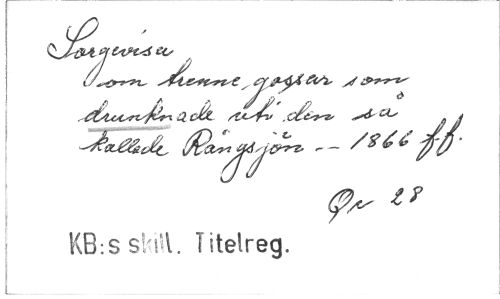 Sorgevisa
om trenne gossar som
drunknade uti den så
kallade Rångsjön -- 1866 ff.
Qr 28
KB:s skill. Titelreg.